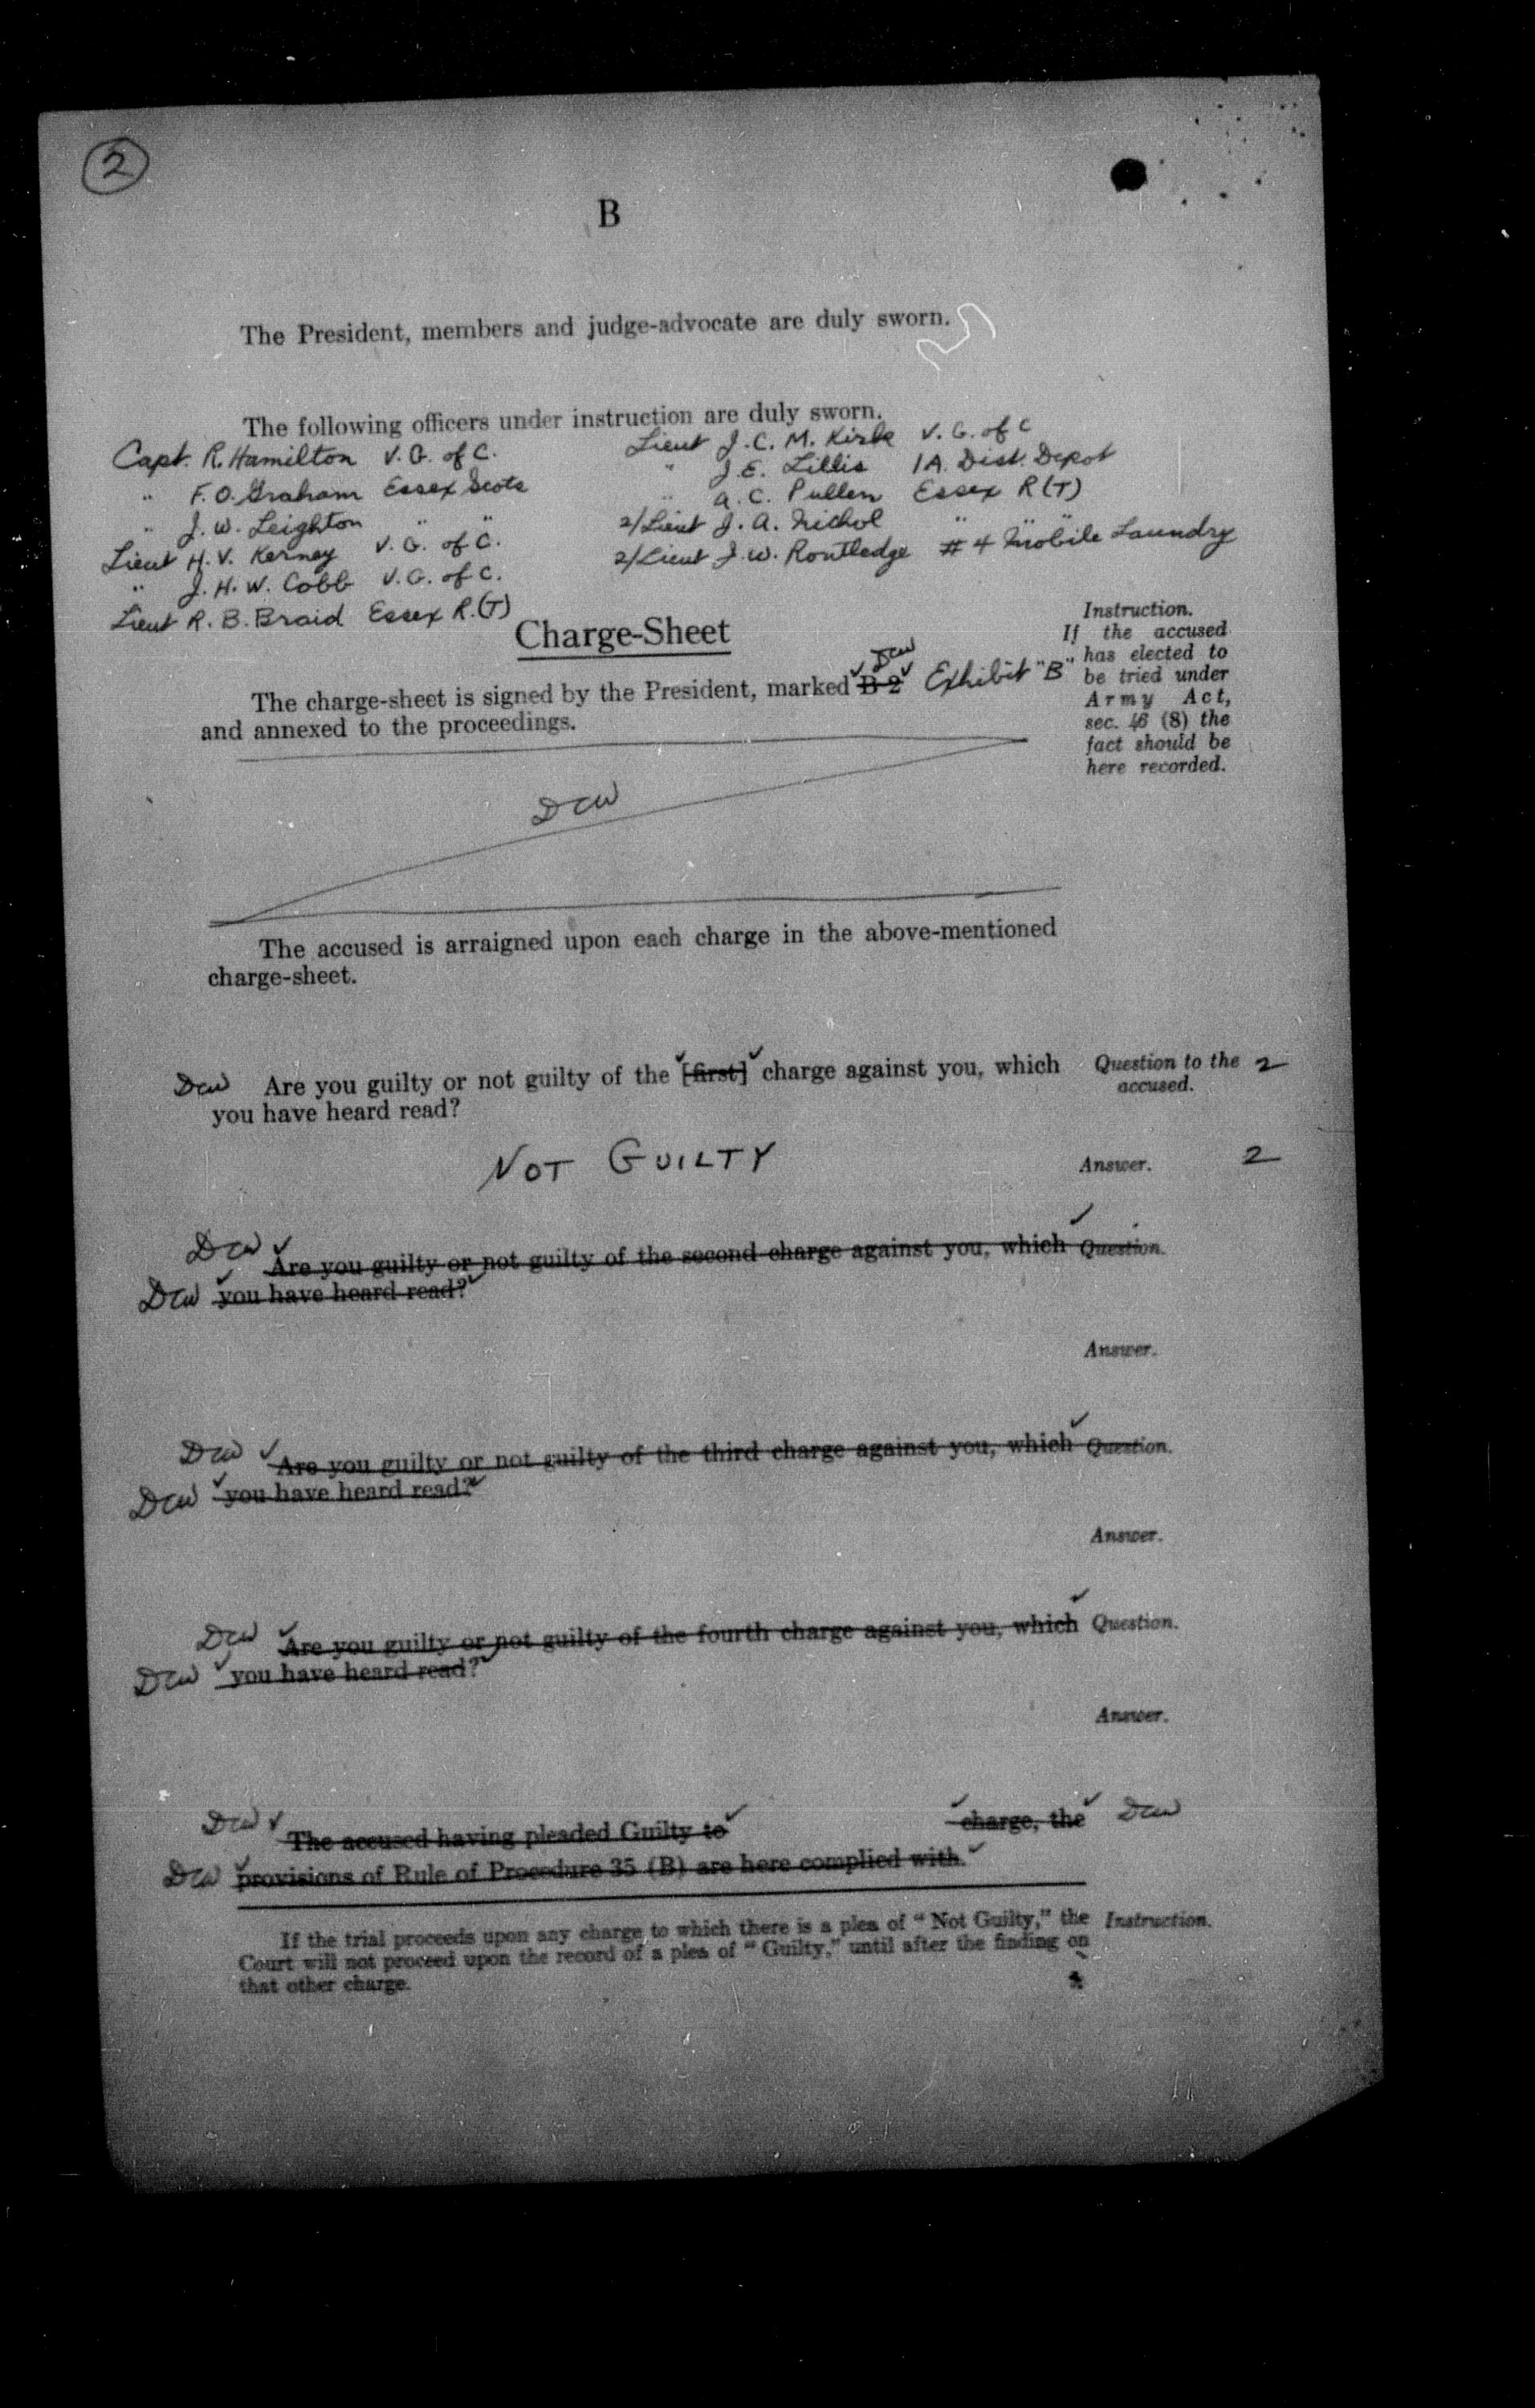 2
B
The President, members and judge-advocate are duly sworn.
The following officers under instruction are duly sworn.
Capt. R. Hamilton V. G. of C.
" F. O. Graham Essex Scots
" J. W. Leighton " "
Lieut H. V. Kerney V. G. of C.
" J. H. W. Cobb V. G. of C.
Lieut R. B. Braid Essex R. (T)
Lieut J. C. M. Kirk V. G. of C
" J. E. Lillis 1A. Dist. Depot
" A. C. Pullen Essex R (T)
2/Lieut J. A. Nichol " "
2/Lieut J. W. Routledge # 4 Mobile Laundry
Charge-Sheet
DCW
The charge-sheet is signed by the President, marked B 2 Exhibit "B"
and annexed to the proceedings.
Instruction.
If the accused
has elected to
be tried under
Army Act,
sec. 46 (8) the
fact should be
here recorded.
DCW
The accused is arraigned upon each charge in the above-mentioned
charge-sheet.
DCW Are you guilty or not guilty of the [first] charge against you, which Question to the 2
you have heard read? accused.
NOT GUILTY Answer. 2
DCW Are you guilty or not guilty of the second charge against you, which Question.
DCW you have heard read?
Answer.
DCW Are you guilty or not guilty of the third charge against you, which Question.
DCW you have heard read?
Answer.
DCW Are you guilty or not guilty of the fourth charge against you, which Question.
DCW you have heard read?
Answer.
DCW The accused having pleaded Guilty to charge, the DCW
DCW provisions of Rule of Procedure 35 (B) are here complied with.
If the trial proceeds upon any charge to which there is a plea of "Not Guilty," the Instruction.
Court will not proceed upon the record of a plea of "Guilty," until after the finding on
that other charge.